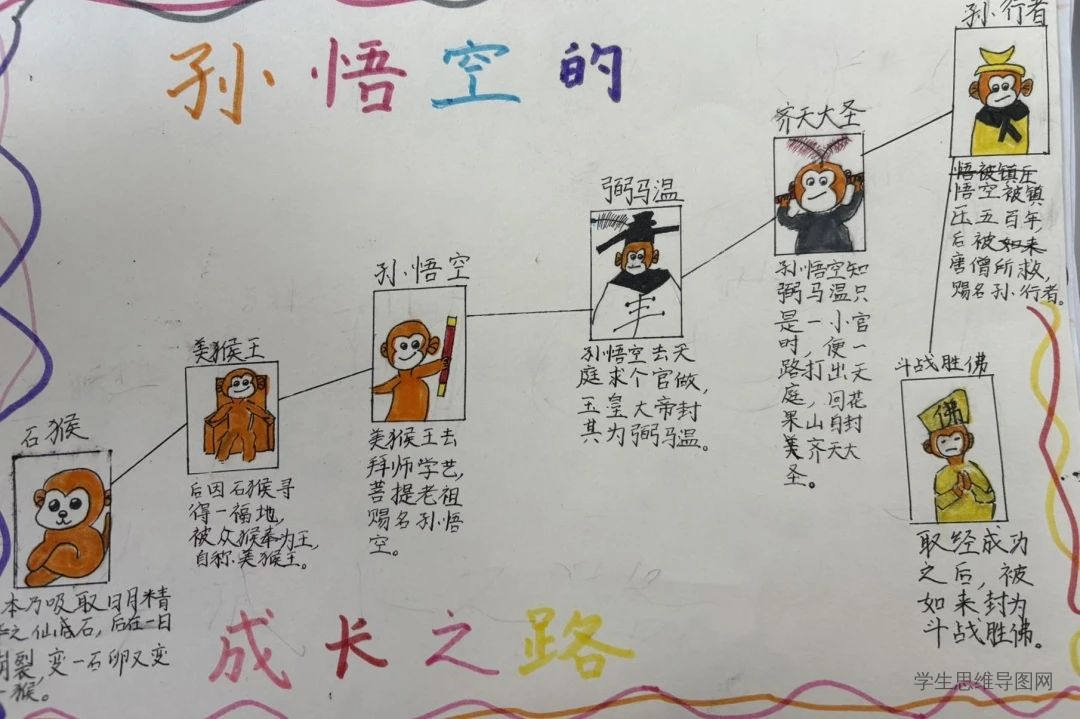 孙悟空的
成长之路
石猴
本乃吸取日月精
之仙底石，后在一日
裂，变一石卵又变
一猴。
美猴王
后因石猴寻
得一福地，
被众猴奉为王，
自称美猴王。
孙悟空
美猴王去
拜师学艺，
菩提老祖
赐名孙悟
空。
弼马温
孙悟空去天
庭求个官做，
玉皇大帝封
其为弼马温。
齐天大圣
孙悟空知
弼马温只
是一小官
时，便一
路打出天
庭，回花
果山自封
美齐天大
圣。
孙行者
悟被镇压
悟空被镇
压五百年，
后被如来
唐僧所救，
赐名孙行者。
斗战胜佛
佛
取经成功
之后，被
如来封为
斗战胜佛。
学生思维导图网